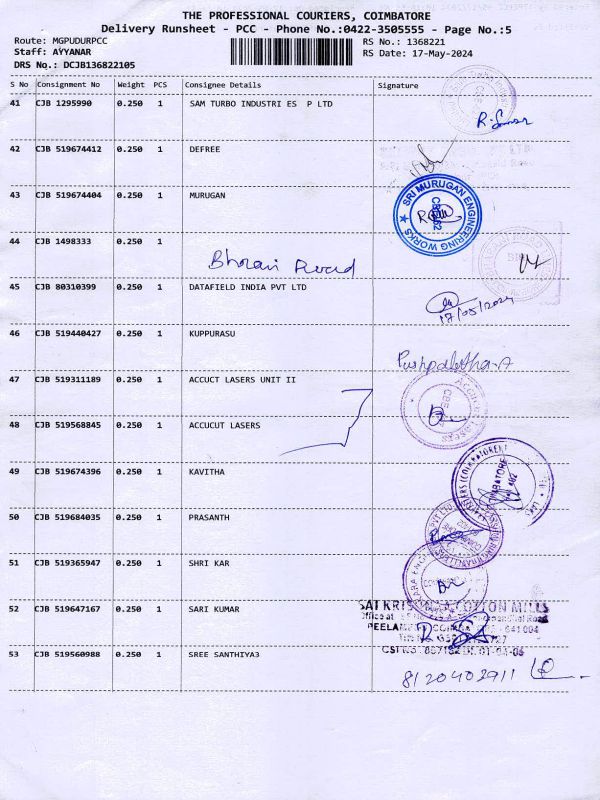 THE PROFESSIONAL COURIERS, COIMBATORE
Delivery Runsheet - PCC - Phone No.:0422-3505555 - Page No.:5
Route: MGPUDURPCC
RS No.: 1368221
Staff: AYYANAR
RS Date: 17-May-2024
DRS No.: DCJB136822105
S No Consignment No Weight PCS Consignee Details Signature
41 CJB 1295990 0.250 1 SAM TURBO INDUSTRI ES P LTD
42 CJB 519674412 0.250 1 DEFREE
43 CJB 519674404 0.250 1 MURUGAN
SRI MURUGAN ENGINEERING WORKS
44 CJB 1498333 0.250 1
45 CJB 80310399 0.250 1 DATAFIELD INDIA PVT LTD
17/05/2024
46 CJB 519440427 0.250 1 KUPPURASU
Pushpalatha-A
47 CJB 519311189 0.250 1 ACCUCT LASERS UNIT II
48 CJB 519568845 0.250 1 ACCUCUT LASERS
49 CJB 519674396 0.250 1 KAVITHA
50 CJB 519684035 0.250 1 PRASANTH
51 CJB 519365947 0.250 1 SHRI KAR
52 CJB 519647167 0.250 1 SARI KUMAR
COTTON MILLS
53 CJB 519560988 0.250 1 SREE SANTHIYA3
8120402911